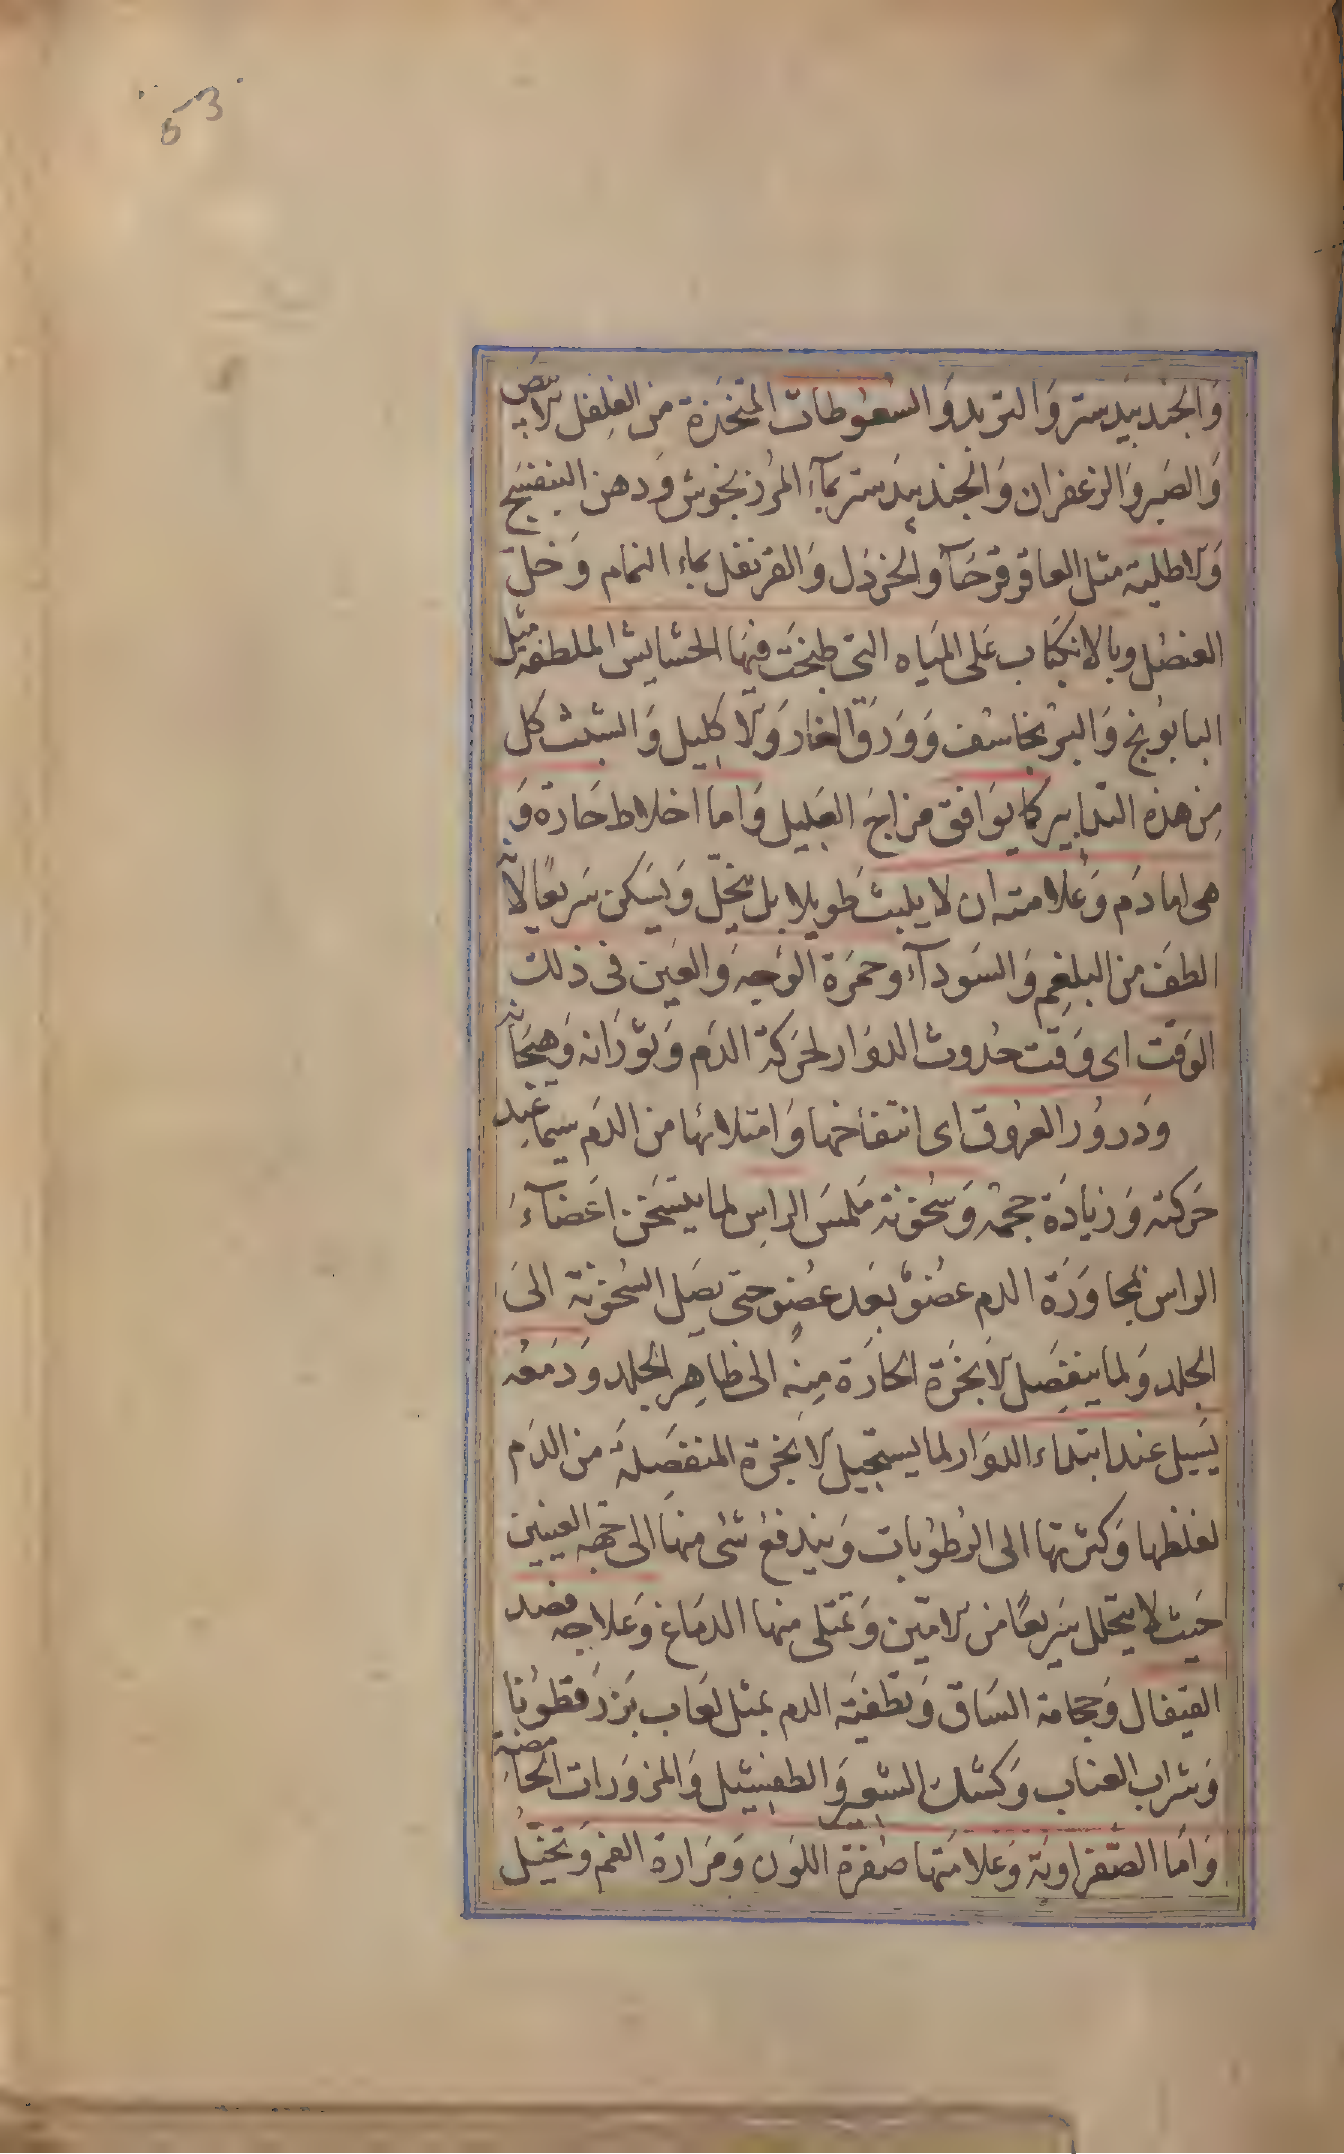 53
وَالجند بَيدستر وَالتربد وَالسُعُوطات المتخذة من الفِلفل الابيَض
وَالصَبر وَالزعفران وَالجند بَيدَستر بمآء المرُزنجوش وَدهن البنفسَج
وَالاطلية مثل العاقرقرحَآ والخردَل وَالقرنفل بماء النمام وَخلّ
العنصُل وبالانكبَاب عَلى المَياه التى طبخَت فيهَا الحشايش الملطفة مثل
البابوُنج وَالبرنجاسُف وَوَرَق الغار وَالاكليل وَالشبث كل
مِن هذه التدابير كما يوَافق مزاجَ العَليل وَاما اخلاط حَادة وَ
هى اما دَم وَعَلامته ان لا يلبث طَويلا بل يتحلّ وَيسَكن سَريعًا لانّه
الطفَ من البلغِم وَالسَودآء وحمرَة الوَجه وَالعَين فى ذلك
الوَقت اى وَقت حدُوث الدوَار لحَركة الدَم وَثوَرَانه وَهيجَانه
وَدرورُ العرُوق اى انتفاخها وَامتلائها من الدَم سيما عند
حَركته وَزيادَة حجمه وَسُخونة مَلمَس الراس لما يتسَخن اعَضآءَ
الراس بمجاوَرَة الدم عضوٌ بعَد عضو حتى يصَل السُخونة الىَ
الجلد وَلما ينفصَل الابخَرة الحارَة مِنه الى ظاهِر الجلد وَدَمَعُه
يَسيل عند ابتداء الدوَار لما يستحيل الابخرة المنفصَلة من الدَم
لغلظها وَكثرتها الى الرُطوُبات وَيندفعُ شئ منهَا الى جهة العينين
حَيث لا يتحلل سَريعًا من الامّين وَتمتلى منها الدمَاغ وَعَلاجه فصد
القيفال وَحجامة السَاق وَتطفيَة الدم بمثل لعَاب بَزرَقطوُنا
وَشراب العناب وَكشك الشعير وَالطفشيل وَالمزوَرات الحآمضة
وَامَا الصّفراوية وَعَلامَتها صُفرة اللوَن وَمَرارة الفم وَتخَيّل